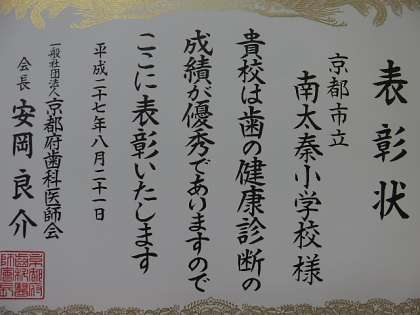 表彰状
京都市立
南太秦小学校様
貴校は歯の健康診断の
成績が優秀でありますので
ここに表彰いたします
平成二十七年八月二十一日
一般社団法人京都府歯科医師会
会長 安岡良介